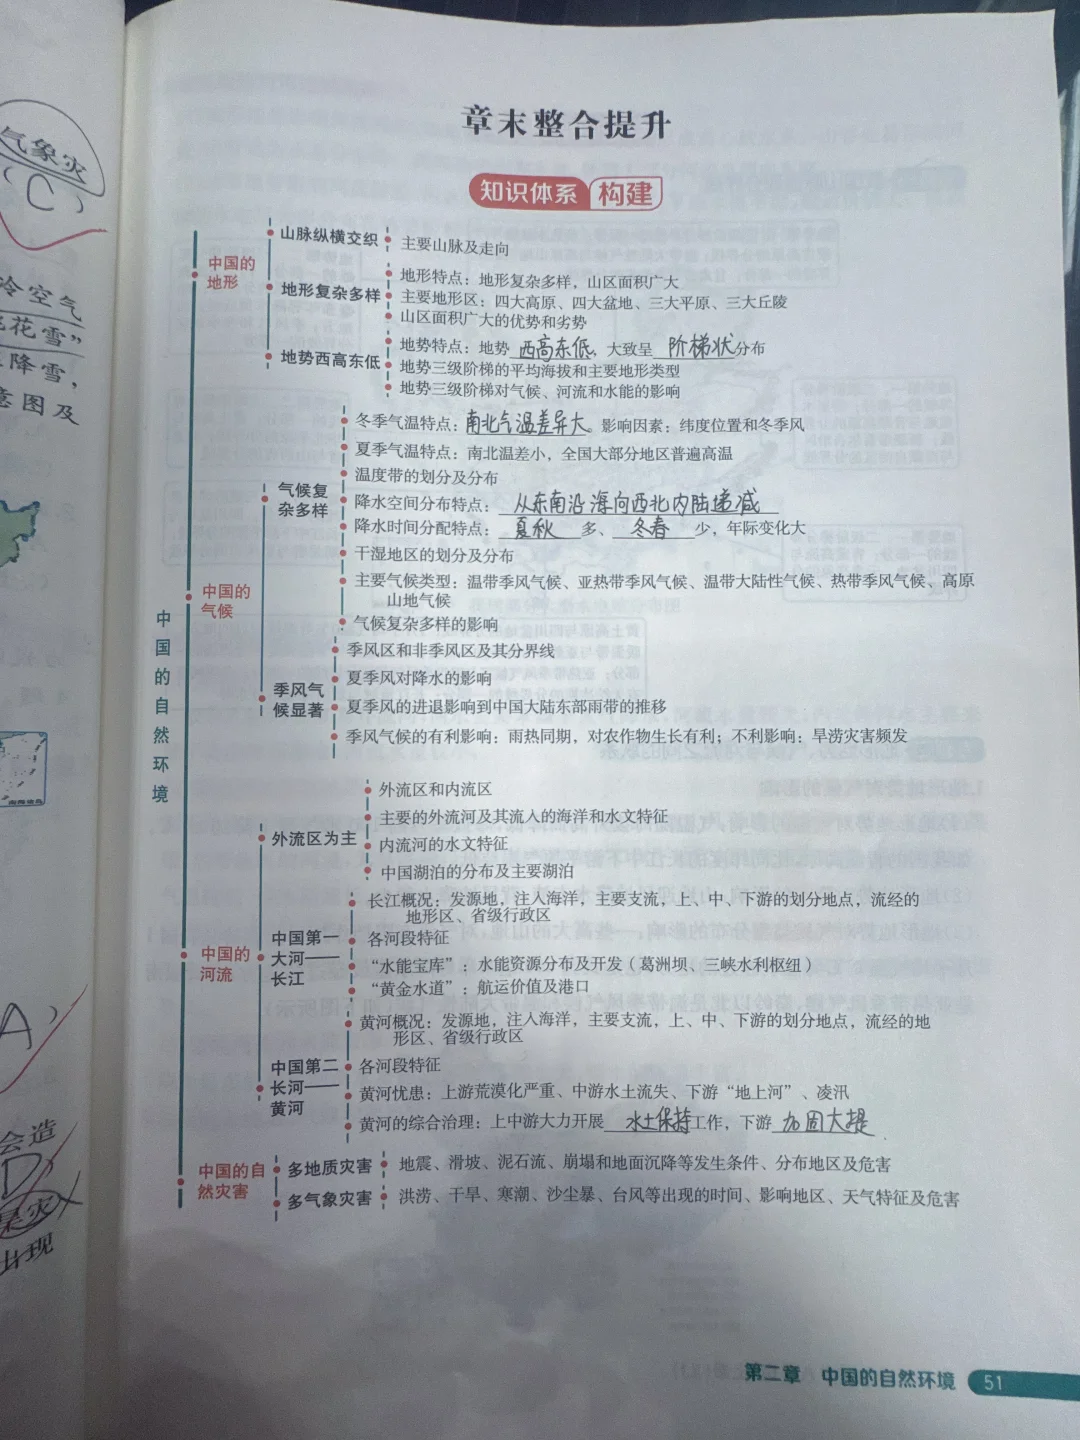 章末整合提升
知识体系 构建
中国的自然环境
中国的地形
山脉纵横交织
主要山脉及走向
地形复杂多样
地形特点：地形复杂多样，山区面积广大
主要地形区：四大高原、四大盆地、三大平原、三大丘陵
山区面积广大的优势和劣势
地势西高东低
地势特点：地势 西高东低，大致呈 阶梯状分布
地势三级阶梯的平均海拔和主要地形类型
地势三级阶梯对气候、河流和水能的影响
中国的气候
气候复杂多样
冬季气温特点：南北气温差异大。影响因素：纬度位置和冬季风
夏季气温特点：南北温差小，全国大部分地区普遍高温
温度带的划分及分布
降水空间分布特点：从东南沿海向西北内陆递减
降水时间分配特点：夏秋 多、冬春 少，年际变化大
干湿地区的划分及分布
主要气候类型：温带季风气候、亚热带季风气候、温带大陆性气候、热带季风气候、高原
山地气候
气候复杂多样的影响
季风气候显著
季风区和非季风区及其分界线
夏季风对降水的影响
夏季风的进退影响到中国大陆东部雨带的推移
季风气候的有利影响：雨热同期，对农作物生长有利；不利影响：旱涝灾害频发
中国的河流
外流区为主
外流区和内流区
主要的外流河及其流入的海洋和水文特征
内流河的水文特征
中国湖泊的分布及主要湖泊
中国第一大河——长江
长江概况：发源地，注入海洋，主要支流，上、中、下游的划分地点，流经的
地形区、省级行政区
各河段特征
“水能宝库”：水能资源分布及开发（葛洲坝、三峡水利枢纽）
“黄金水道”：航运价值及港口
中国第二长河——黄河
黄河概况：发源地，注入海洋，主要支流，上、中、下游的划分地点，流经的地
形区、省级行政区
各河段特征
黄河忧患：上游荒漠化严重、中游水土流失、下游“地上河”、凌汛
黄河的综合治理：上中游大力开展 水土保持工作，下游 加固大堤
中国的自然灾害
多地质灾害
地震、滑坡、泥石流、崩塌和地面沉降等发生条件、分布地区及危害
多气象灾害
洪涝、干旱、寒潮、沙尘暴、台风等出现的时间、影响地区、天气特征及危害
第二章 中国的自然环境 51
气象灾
（C）
冷空气
花雪”
降雪，
意图及
A）
会造
D）
出现